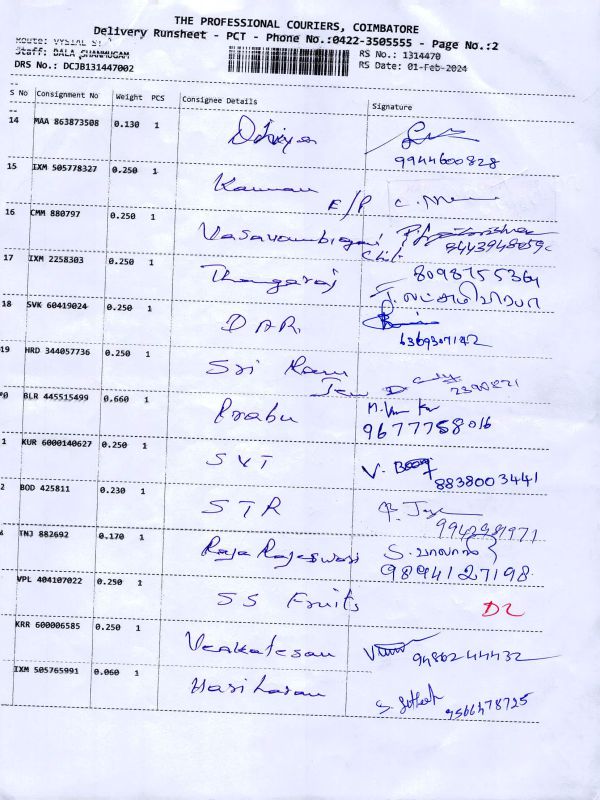 THE PROFESSIONAL COURIERS, COIMBATORE
Delivery Runsheet - PCT - Phone No.:0422-3505555 - Page No.:2
Route: VYSIAL ST
RS No.: 1314470
Staff: BALA SHANMUGAM
RS Date: 01-Feb-2024
DRS No.: DCJB131447002
S No Consignment No Weight PCS Consignee Details Signature
14 MAA 863873508 0.130 1
9944600828
15 IXM 505778327 0.250 1 Kannan
E/P
16 CMM 880797 0.250 1 Vasavambigai
Chit
17 IXM 2258303 0.250 1 Thangaraj 8098755364
18 SVK 60419024 0.250 1 DAR
6369307142
19 HRD 344057736 0.250 1 Sri Ram
BLR 445515499 0.660 1 Prabu
9677758016
1 KUR 6000140627 0.250 1 SVT V.
8838003441
2 BOD 425811 0.230 1 STR
TNJ 882692 0.170 1 Raja Rajeswari
9894127198
VPL 404107022 0.250 1 SS Fruits DL
KRR 600006585 0.250 1 Venkatesan 9486244432
IXM 505765991 0.060 1 Hariharan
9566478725